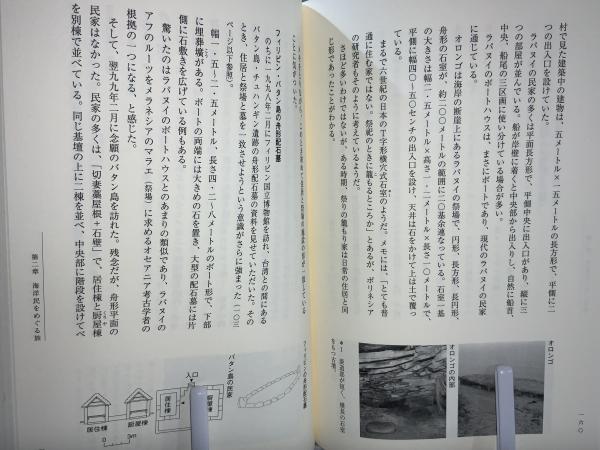 一六〇
村で見た建築中の建物は、五メートル×一五メートルの長方形で、平側に二
つの出入口を設けていた。
ラパヌイの民家の多くは平面長方形で、平側中央に出入口があり、縦に三
つの部屋が並んでいる。船が岸壁に着くと中央部から出入りし、自然に船首、
中央、船尾の三区画に使い分けている場合が多い。
ラパヌイのボートハウスは、まさにボートであり、現代のラパヌイの民家
に通じている。
オロンゴは海岸の断崖上にあるラパヌイの祭場で、円形、長方形、長円形、
舟形の石室が、約二〇〇メートルの範囲に二〇基余連なっている。石室一基
の大きさは幅一・五メートル×高さ一・二メートル×長さ一〇メートルで、
平側に幅四〇〜五〇センチの出入口を設け、天井は石をかけて上は土で覆っ
ている。
まるで六世紀の日本のT字形横穴式石室のようだ。メモには、「とても普
通に住む家ではない。祭祀のときに籠もるところか」とあるが、ポリネシア
の研究者もそのように考えているようだ。
さほど多いわけではないが、ある時期、祭りの籠もり家は日常の住居と同
じ形であったことがわかる。
オロンゴ
オロンゴの内部
*1 羨道部が短く、横長の石室
をもつ古墳。
フィリピン・バタン島の舟形配石墓
のちに一九九八年二月にフィリピン国立博物館を訪れ、台湾との間にある
バタン島・チュハンギン遺跡の舟形配石墓の資料を見せていただいた。その
とき、住居と祭場と墓を一致させようという意識がさらに強まった(一〇三
ページ以下参照)。
幅一・五メートル、長さ四・二〜八メートルのボート形で、下部
に埋葬壙がある。ボートの両端には大きめの石を置き、大型の配石墓には片
側に石敷きを広げている例もある。
驚いたのはラパヌイのボートハウスとのあまりの類似であり、ラパヌイの
アフのルーツをメラネシアのマラエ(祭場)に求めるオセアニア考古学者の
根拠の一つになる、と感じた。
そして、翌九九年二月に念願のバタン島を訪れた。残念だが、舟形平面の
民家はなかった。民家の多くは、「切妻藁屋根+石壁」で、居住棟と厨屋棟
を別棟で並べている。同じ基壇の上に二棟を並べ、中央部に階段を設けてべ
バタン島の民家
入口
居住棟
厨屋棟
居住棟
厨屋棟
0
3m
第二章 海洋民をめぐる旅